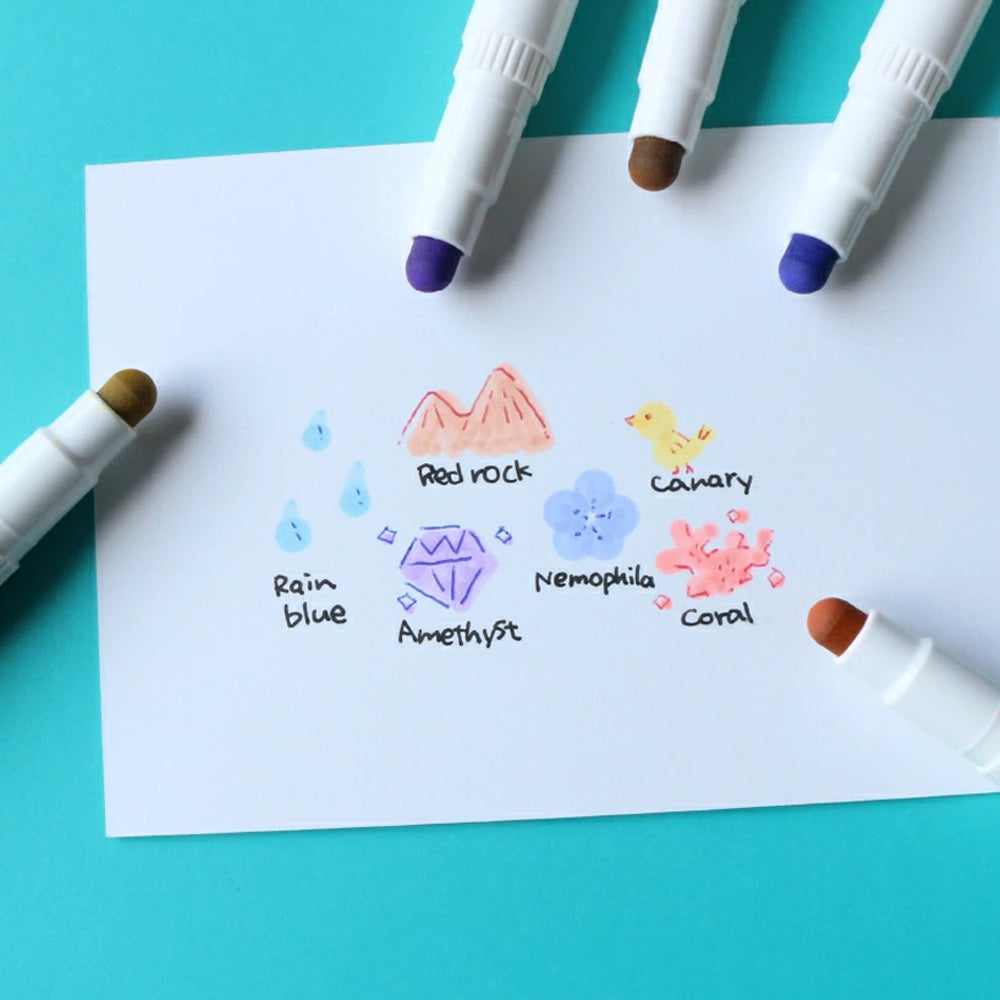 Red rock
Canary
Rain
blue
Amethyst
Nemophila
Coral